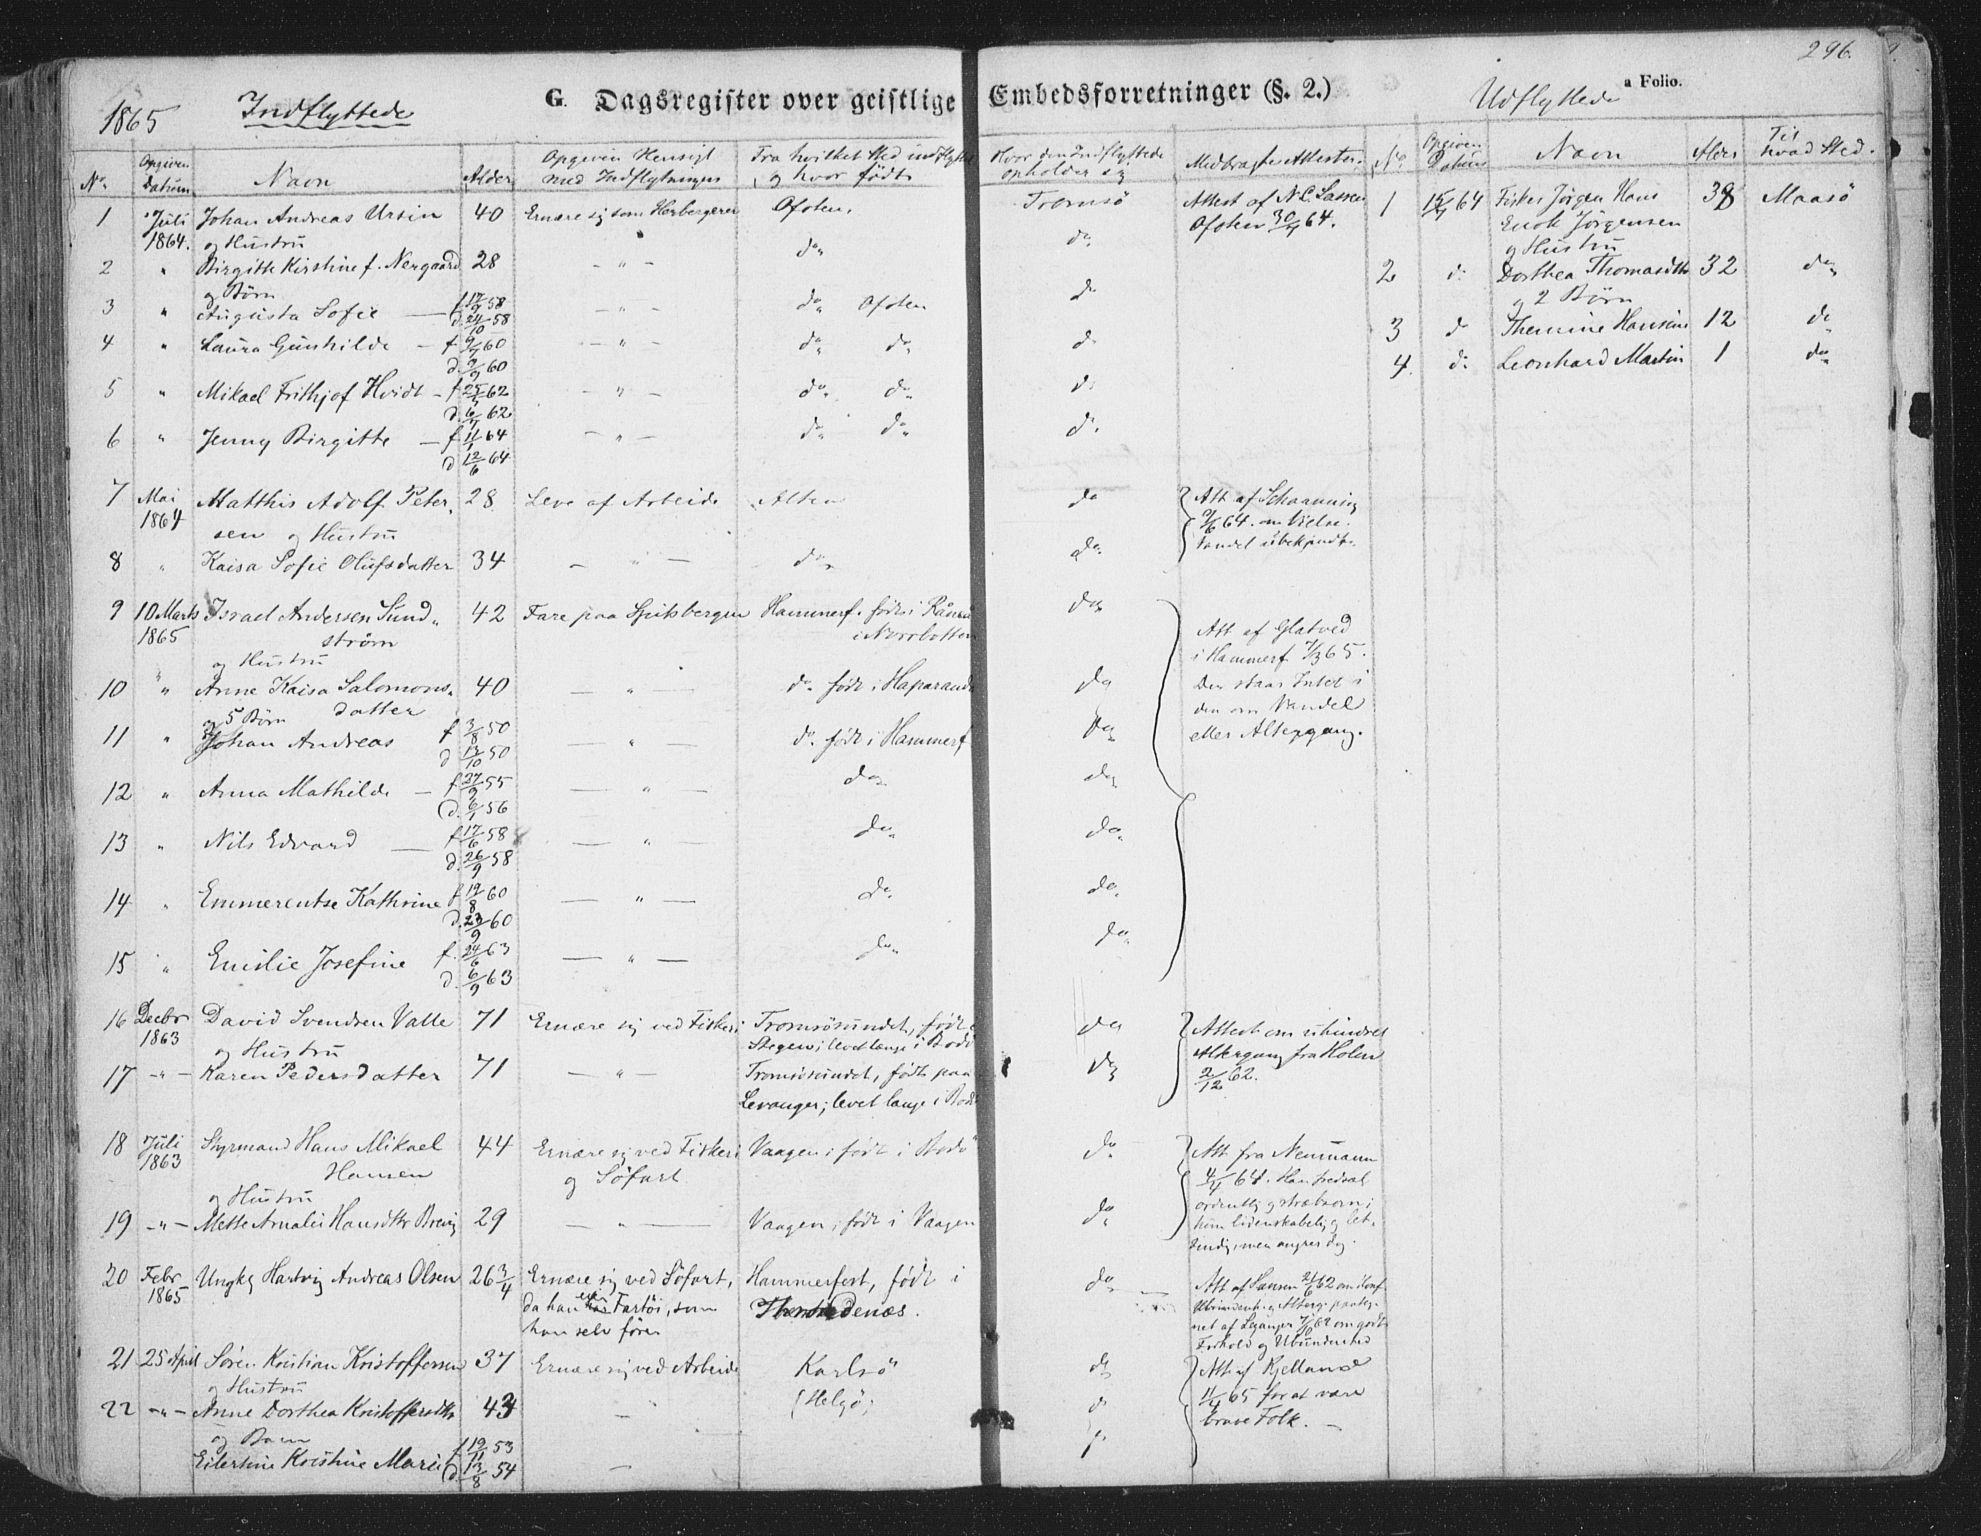 296.
1865 Indflyttede G. Dagsregister over geistlige Embedsforretninger (§. 2.) Udflyttede a Folio.
No. Opgiven Datum Navn Alder Opgiven Hensigt med Indflytningen Fra hvilket Sted indflyttet og hvor født Hvor den Indflyttede opholder sig Medbragte Attester. No. Opgiven Datum Navn Alder Til hvad Sted.
1 Juli 1864. Johan Andreas Ursin 40 Ernære sig som Herbergerer Ofoten. Tromsö Attest af N.C. Sassen Ofoten 30/4 64.
og Hustru
2 " Birgitte Kirstine f. Nergaard 28 - " - do. do.
og Børn
3 " Augusta Sofie — f. 17/9 58 d. 24/10 58 - " - do. Ofoten do
4 " Laura Gunhilde — f 9/7 60 d. 9/9 60 - " - do. do. do
5 " Mikael Frithjof Hvidt — f 25/5 62 d. 6/7 62 - " - do. do. do
6 " Jenny Birgitte — f 11/1 64 d 12/6 64 - " - do. do. do.
7 Mai 1864 Matthis Adolf Petersen 28 Leve af Arbeide Alten do Att af Schaanning 9/6 64. om Vielse. Vandel ubekjendt.
og Hustru
8 " Kaisa Sofie Olufsdatter 34 - " - do. do.
9 10 Marts 1865 Israel Andersen Sundström 42 Fare paa Spitsbergen Hammerf. født i Råneå i Norrbotten do. Att af Glatved i Hammerf 7/3 65. Der staar Intet i den om Vandel eller Altergang.
og Hustru
10 " Anne Kaisa Salomonsdatter 40 — " — do. født i Haparanda do
og 5 Børn
11 " Johan Andreas f 3/8 50 d 13/10 50 — " — do. født i Hammerf do.
12 " Anna Mathilde — f 27/9 55 d. 6/1 56 — " — do. do.
13 " Nils Edvard — f 17/6 58 d. 26/9 58 — " — do. do.
14 " Emmerentse Kathrine f 19/8 60 d. 23/9 60 — " — do. do.
15 " Emilie Josefine f. 24/6 63 d. 6/9 63 — " — do. do.
16 Decbr 1863 David Svendsen Valle 71 Ernære sig ved Fiskeri Tromsösundet, født i Stegen; levet længe i Bodö do Attest om uhindret Altergang fra Holm 2/12 62.
og Hustru
17 - " - Karen Pedersdatter 71 — " — Tromsösundet, født paa Levanger; levet længe i Bodö do
18 Juli 1863 Styrmand Hans Mikael Hansen 44 Ernære sig ved Fiskeri og Söfart Vaagen; født i Bodö do Att fra Neumann 4/4 64. Han fredsal, ordentlig og stræbsom; hun lidenskabelig og letsindig, men angrer dog.
og Hustru
19 - " - Mette Amalie Hansdtr Brevig 29 — " — Vaagen, født i Vaagen do.
20 Febr 1865 Ungk Hartvig Andreas Olsen 26 3/4 Ernære sig ved Söfart, da han eier Fartöi, som han selv förer Hammerfest, født i Throndenæs. do. Att af Sausen 21/6 62 om Konf Ubundenh. og Alterg. paategnet af Leganger 7/10 62 om godt Forhold og Ubundenhed
21 25 April Sören Kristian Kristoffersen 37 Ernære sig ved Arbeide Karlsö (Helgö) do Att af Kjelland 11/4 65 for at være brave Folk. —
og Hustru
22 - " - Anne Dorthea Kristoffersdtr 43
og Barn
Eilertine Kristine Marie f 19/11 53 d. 13/8 54 —
1 15/7 64 Fisker Jörgen Hans Enok Jörgensen 38 Maasö
og Hustru
2 do Dorthea Thomasdtr 32 do.
og 2 Börn
3 do Themine Hansine 12 do
4. do Leonhard Martin 1 do.